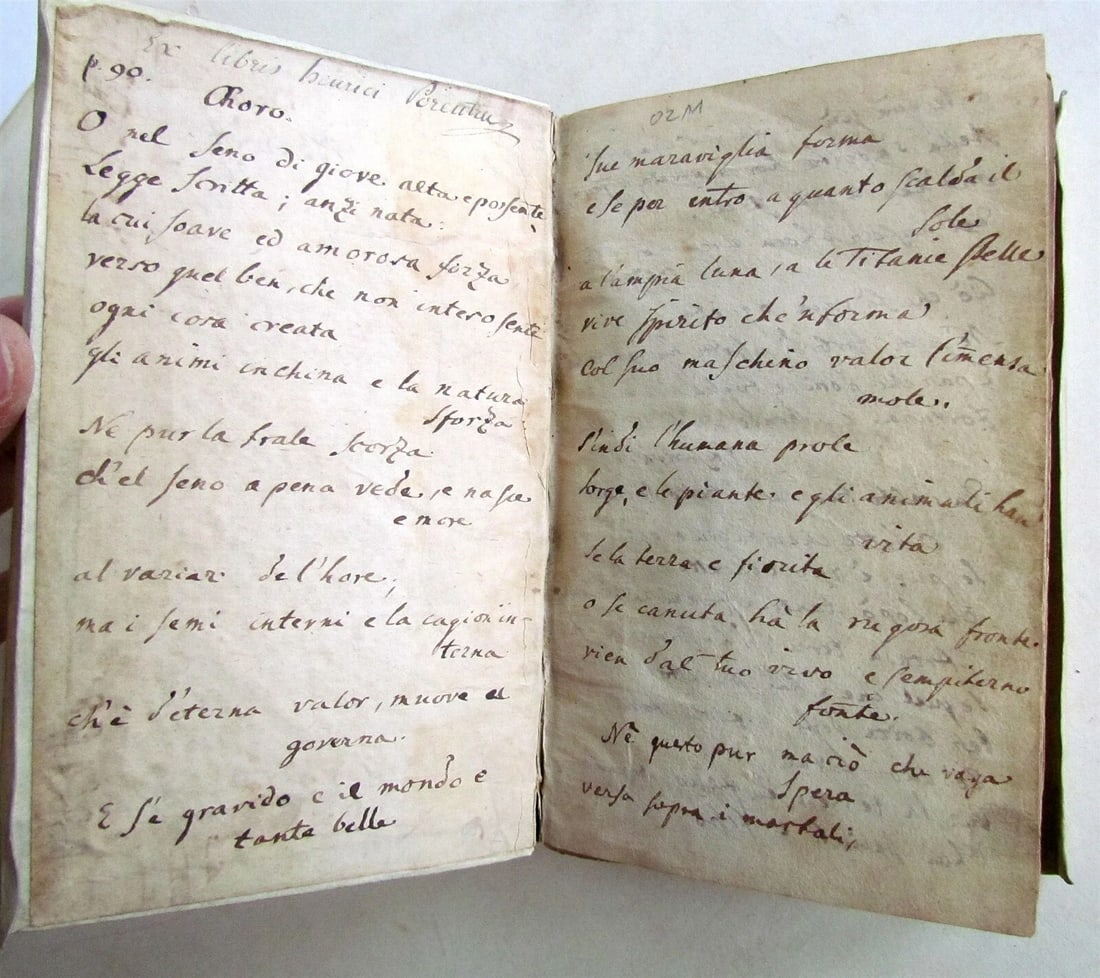 Ex libris henrici
p. 90.
Choro.
O nel seno di giove alta e possente
Legge scritta; anzi nata:
la cui soave ed amorosa forza
verso quel ben, che non inteso sente
ogni cosa creata
gli animi inchina e la natura
sforza.
Nè pur la frale scorza
ch'el seno a pena vede, e nasce
e more
al variar de l'hore,
ma i semi interni e la cagion in-
terna
ch'è d'eterna valor, muove e
governa.
E s'è gravido e il mondo e
tante belle
02M
Sue maraviglia forma
e se per entro a quanto scalda il
Sole
a l'ampia luna, a le Titanie stelle
vive spirito che'nforma
col suo maschino valor l'immensa
mole.
s'indi l'humana prole
sorge, e le piante e gli animali han
vita
se la terra e fiorita
o se canuta hà la rugosa fronte
vien dal tuo vivo e sempiterno
fonte.
Nè questo pur ma ciò che vaga
Spera
versa sopra i mortali,